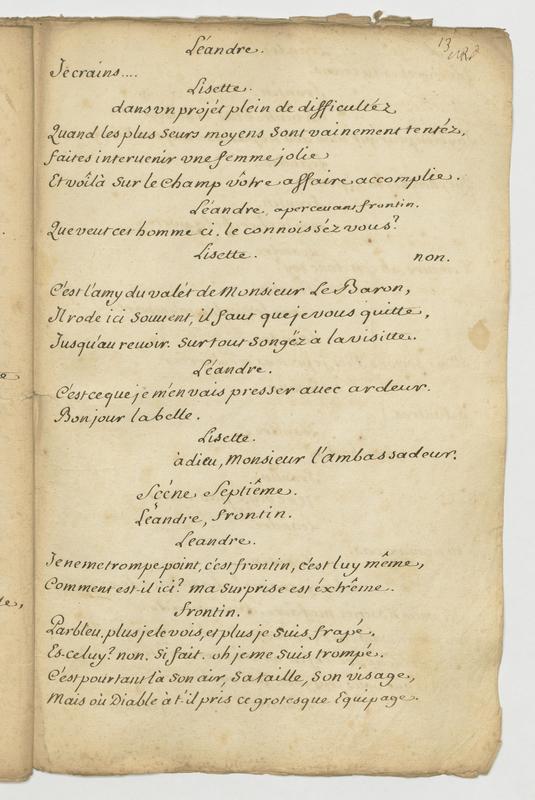 13
Léandre.
Je crains....
Lisette.
dans vn projét plein de difficultéz
Quand les plus seurs moyens sont vainement tentéz,
faites interuenir vne femme jolie
Et voilà sur le champ vôtre affaire accomplie.
Léandre, apercevant frontin.
Que veut cet homme ci. le connoisséz vous?
Lisette. non.
C'est l'amy du valét de Monsieur Le Baron,
Il rode ici souuent, il faut que je vous quitte,
Jusqu'au reuoir. surtout songéz à la visitte.
Léandre.
C'est ce que je m'en vais presser auec ardeur.
Bonjour la belle.
Lisette.
àdieu, Monsieur l'ambassadeur.
Scéne Septiême.
Léandre, frontin.
Leandre.
Je ne me trompe point, c'est frontin, c'est luy même,
Comment est-il ici? ma surprise est éxtrême.
frontin.
Parbleu, plus je le vois, et plus je suis frapé.
Es-ce luy? non. si fait. oh je me suis trompé.
C'est pourtant là son air, sa taille, son visage,
Mais où Diable à t'il pris ce grotesque Equipage.